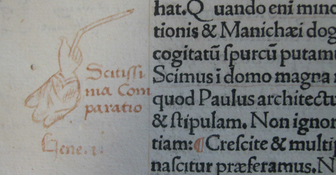 Scitissi
ma Com
paratio
Gene.1.
hat. Quando eni minc
tionis & Manichæi dog
cogitatũ spurcũ putam
Scimus i domo magna
quod Paulus architectu
& stipulam. Non ignor
tiam: ¶ Crescite & multip
nascitur præferamus. N